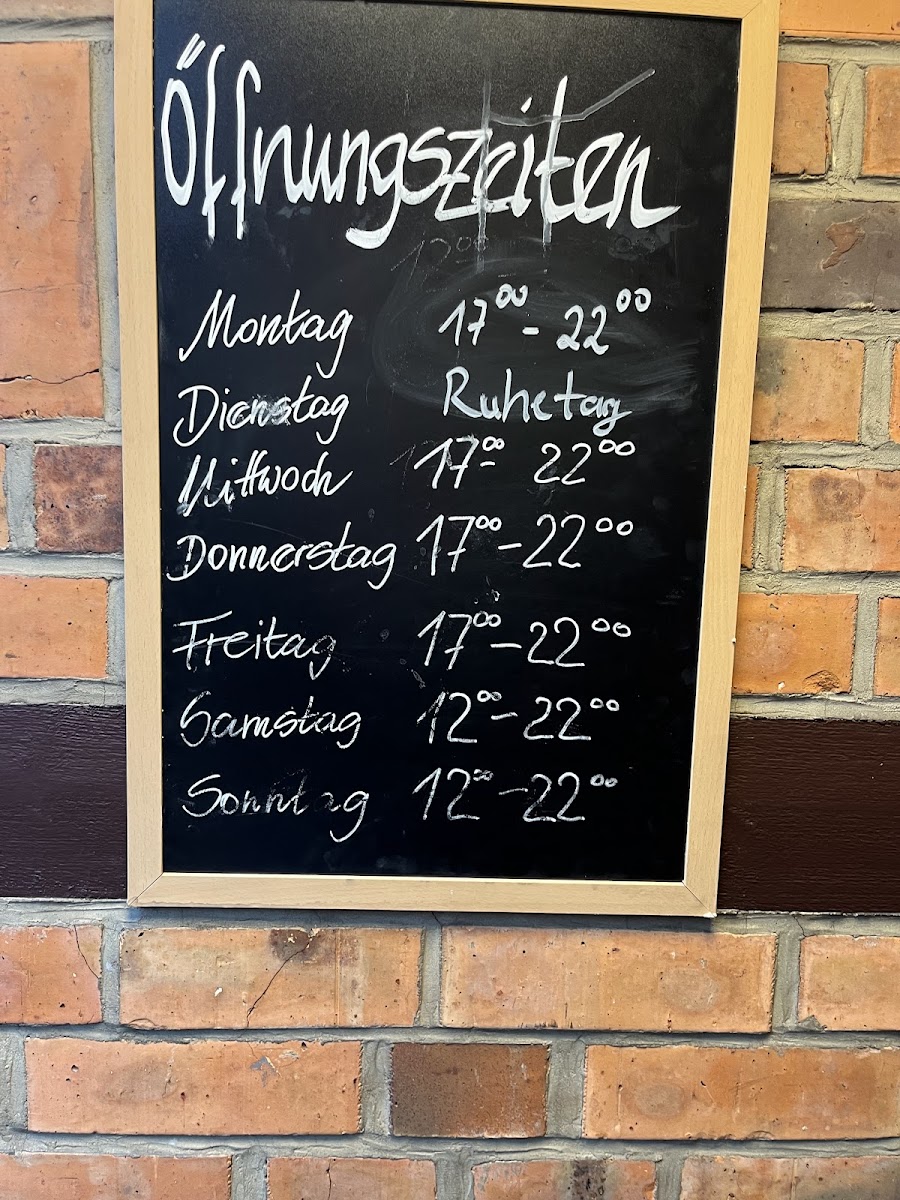 Öffnungszeiten
Montag 17⁰⁰ - 22⁰⁰
Dienstag Ruhetag
Mittwoch 17⁰⁰ 22⁰⁰
Donnerstag 17⁰⁰ - 22⁰⁰
Freitag 17⁰⁰ - 22⁰⁰
Samstag 12⁰⁰ - 22⁰⁰
Sonntag 12⁰⁰ - 22⁰⁰